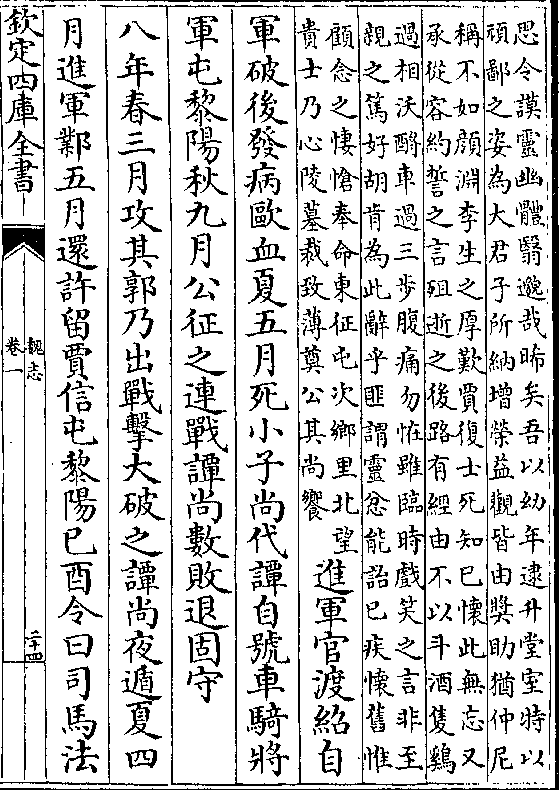 思令謨靈幽體翳邈哉晞矣吾以幼年逮升堂室特以
頑鄙之姿為大君子所納增榮益觀皆由奬助猶仲尼
稱不如顔淵李生之厚歎賈復士死知已懷此無忘又
承從容約誓之言殂逝之後路有經由不以斗酒隻鷄
過相沃酹車過三步腹痛勿怪雖臨時戲笑之言非至
親之篤好胡肯為此辭乎匪謂靈忿能詒已疾懷舊惟
顧念之悽愴奉命東征屯次鄉里北望
貴土乃心陵墓裁致薄奠公其尚饗
進軍官渡紹自
軍破後發病歐血夏五月死小子尚代譚自號車騎將
軍屯黎陽秋九月公征之連戰譚尚數敗退固守
八年春三月攻其郭乃出戰擊大破之譚尚夜遁夏四
月進軍鄴五月還許留賈信屯黎陽已酉令曰司馬法
欽定四庫全書
魏志
卷一
二十四